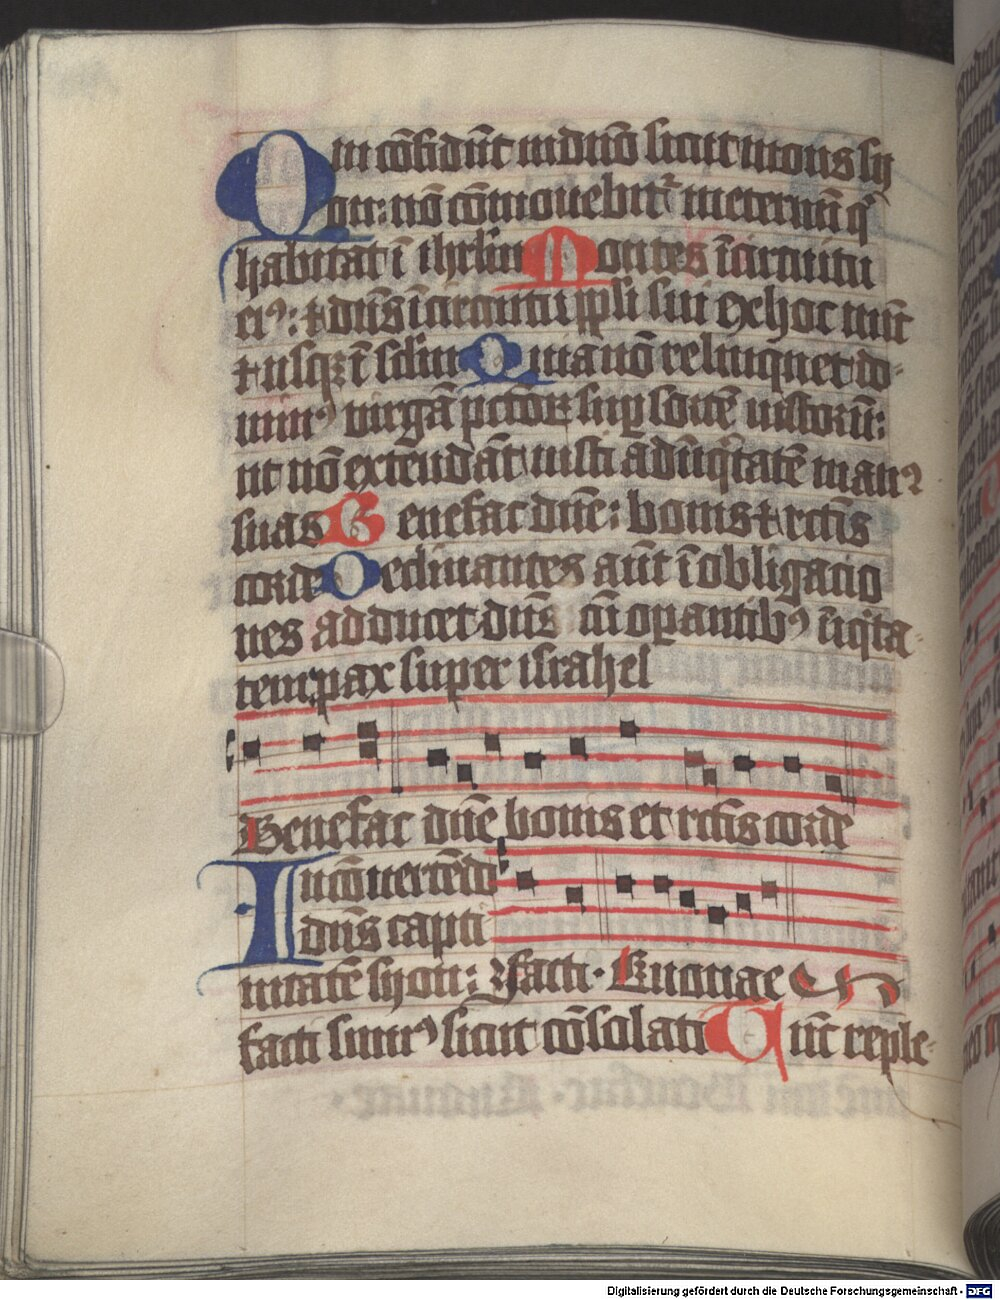 Qui cōfidūt in dn̄o sicut mons sy
on: nō cōmouebit᷑ in eternū qͥ
habitat ī ihrl̄m Montes ī circuitu
eiꝰ: ⁊ dn̄s ī circuitu ppli sui ex hoc nūc
⁊ usqꝫ ī sclm̄ Quia nō relinquet do-
minꝰ virgā pctōꝝ suꝑ sortē iustorū:
ut nō extendāt iusti ad īiqͥtatē manꝰ
suas Benefac dn̄e: bonis ⁊ rctīs
corde Declinantes aūt ī obligacio
nes adducet dn̄s cū oꝑantibꝰ īiqͥta-
tem: pax super israhel
Benefac dn̄e bonis et rctis corde
In cōuertēdo
dn̄s capti
uitatē syon: Facti · Euouae
facti sumꝰ sicut cōsolati Tūc reple-
Digitalisierung gefördert durch die Deutsche Forschungsgemeinschaft - DFG